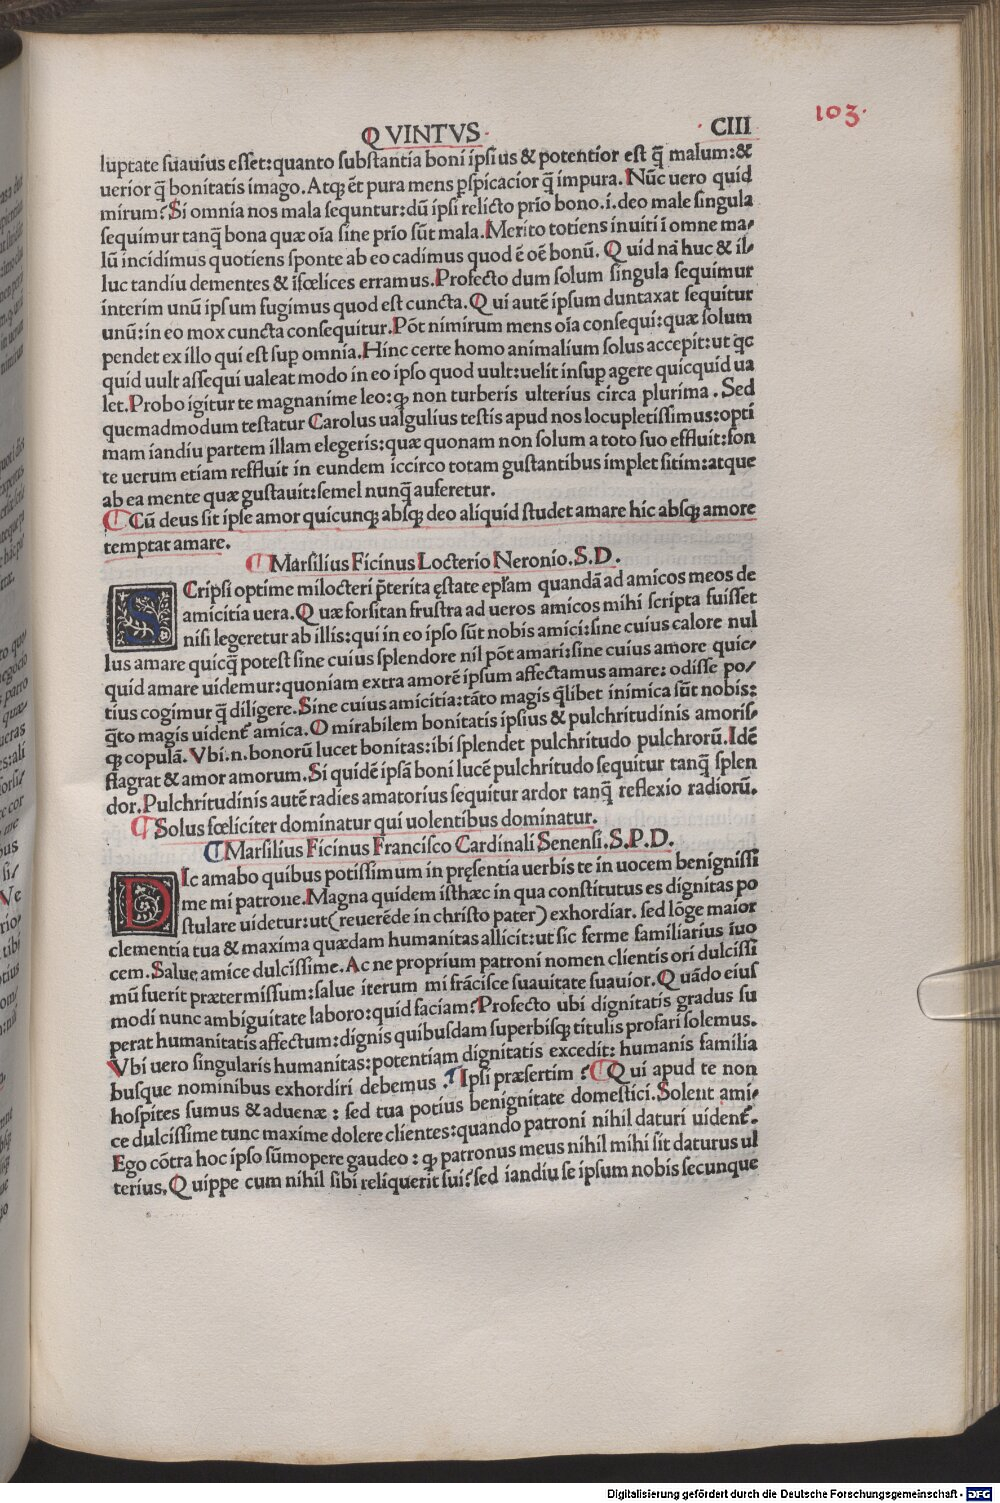 QVINTVS.
CIII
103.
luptate suauius esset:quanto substantia boni ipsius & potentior est q̃ malum:&
uerior q̃ bonitatis imago.Atqꝫ ẽt pura mens ꝑspicacior q̃ impura.Nũc uero quid
mirum?Si omnia nos mala sequntur:dũ ipsi relicto prio bono.i.deo male singula
sequimur tanq̃ bona quæ oĩa sine prio sũt mala.Merito totiens inuiti ĩ omne ma⸗
lũ incidimus quotiens sponte ab eo cadimus quod ẽ oẽ bonũ. Quid nã huc & il⸗
luc tandiu dementes & ĩfœlices erramus.Profecto dum solum singula sequimur
interim unũ ipsum fugimus quod est cuncta.Qui autẽ ipsum duntaxat sequitur
unũ:in eo mox cuncta consequitur.Põt nimirum mens oĩa consequi:quæ solum
pendet ex illo qui est suꝑ omnia.Hinc certe homo animalium solus accepit:ut qc
quid uult assequi ualeat modo in eo ipso quod uult:uelit insuꝑ agere quicquid ua
let.Probo igitur te magnanime leo:ꝙ non turberis ulterius circa plurima.Sed
quemadmodum testatur Carolus ualgulius testis apud nos locupletissimus:opti
mam iandiu partem illam elegeris:quæ quonam non solum a toto suo effluit:fon
te uerum etiam reffluit in eundem iccirco totam gustantibus implet sitim:atque
ab ea mente quæ gustauit:semel nunq̃ auferetur.
Cũ deus sit ipse amor quicunqꝫ absqꝫ deo aliquid studet amare hic absqꝫ amore
temptat amare.
Marsilius Ficinus Locterio Neronio.S.D.
SCripsi optime mi locteri p̃terita ęstate epl̃am quandã ad amicos meos de
amicitia uera.Quæ forsitan frustra ad ueros amicos mihi scripta fuisset
nisi legeretur ab illis:qui in eo ipso sũt nobis amici:sine cuius calore nul
lus amare quicq̃ potest sine cuius splendore nil põt amari:sine cuius amore quic⸗
quid amare uidemur:quoniam extra amorẽ ipsum affectamus amare:odisse po⸗
tius cogimur q̃ diligere.Sine cuius amicitia:tãto magis q̃libet inimica sũt nobis:
q̃to magis uident̃ amica.O mirabilem bonitatis ipsius & pulchritudinis amoris⸗
qꝫ copulã.Vbi.n.bonorũ lucet bonitas:ibi splendet pulchritudo pulchrorũ.Idẽ
flagrat & amor amorum.Si quidẽ ipsã boni lucẽ pulchritudo sequitur tanq̃ splen
dor.Pulchritudinis autẽ radies amatorius sequitur ardor tanq̃ reflexio radiorũ.
Solus fœliciter dominatur qui uolentibus dominatur.
Marsilius Ficinus Francisco Cardinali Senensi.S.P.D.
DIc amabo quibus potissimum in pręsentia uerbis te in uocem benignissi
me mi patrone.Magna quidem isthæc in qua constitutus es dignitas po
stulare uidetur:ut(reuerẽde in christo pater)exhordiar.sed lõge maior
clementia tua & maxima quædam humanitas allicit:ut sic ferme familiarius iuo
cem.Salue amice dulcissime.Ac ne proprium patroni nomen clientis ori dulcissi
mũ fuerit prætermissum:salue iterum mi frãcisce suauitate suauior.Quãdo eius
modi nunc ambiguitate laboro:quid faciam?Profecto ubi dignitatis gradus su
perat humanitatis affectum:dignis quibusdam superbisqꝫ titulis profari solemus.
Vbi uero singularis humanitas:potentiam dignitatis excedit:humanis familia
busque nominibus exhordiri debemus.Ipsi præsertim?Qui apud te non
hospites sumus & aduenæ:sed tua potius benignitate domestici.Solent ami⸗
ce dulcissime tunc maxime dolere clientes:quando patroni nihil daturi uident̃.
Ego cõtra hoc ipso sũmopere gaudeo:ꝙ patronus meus nihil mihi sit daturus ul
terius,Quippe cum nihil sibi reliquerit sui?sed iandiu se ipsum nobis secunque
Digitalisierung gefördert durch die Deutsche Forschungsgemeinschaft - DFG